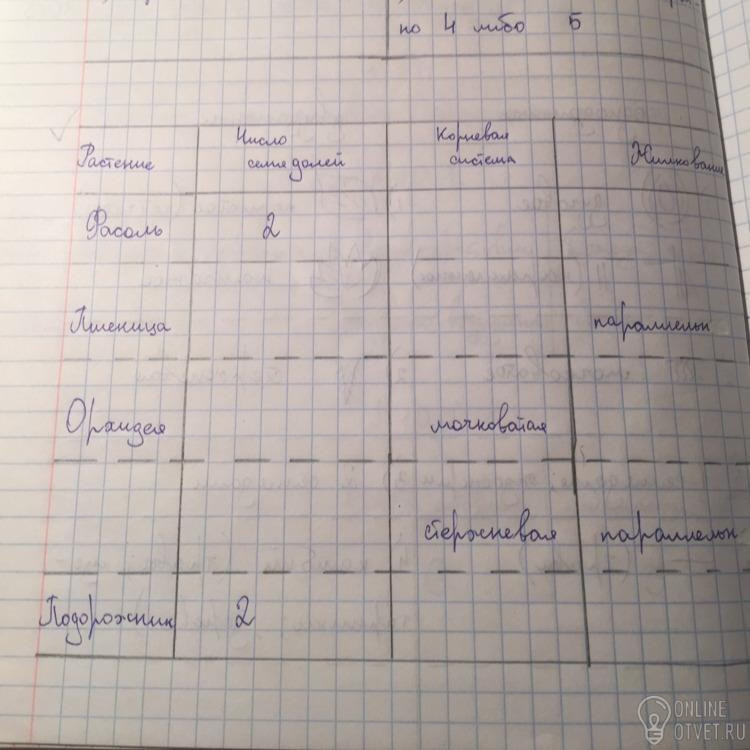 по 4 либо 5
Растение
Число
семядолей
Корневая
система
Жилкование
Фасоль 2
Пшеница параллельн
Орхидея мочковатая
стержневая параллельн
Подорожник 2
ONLINE
OTVET.RU